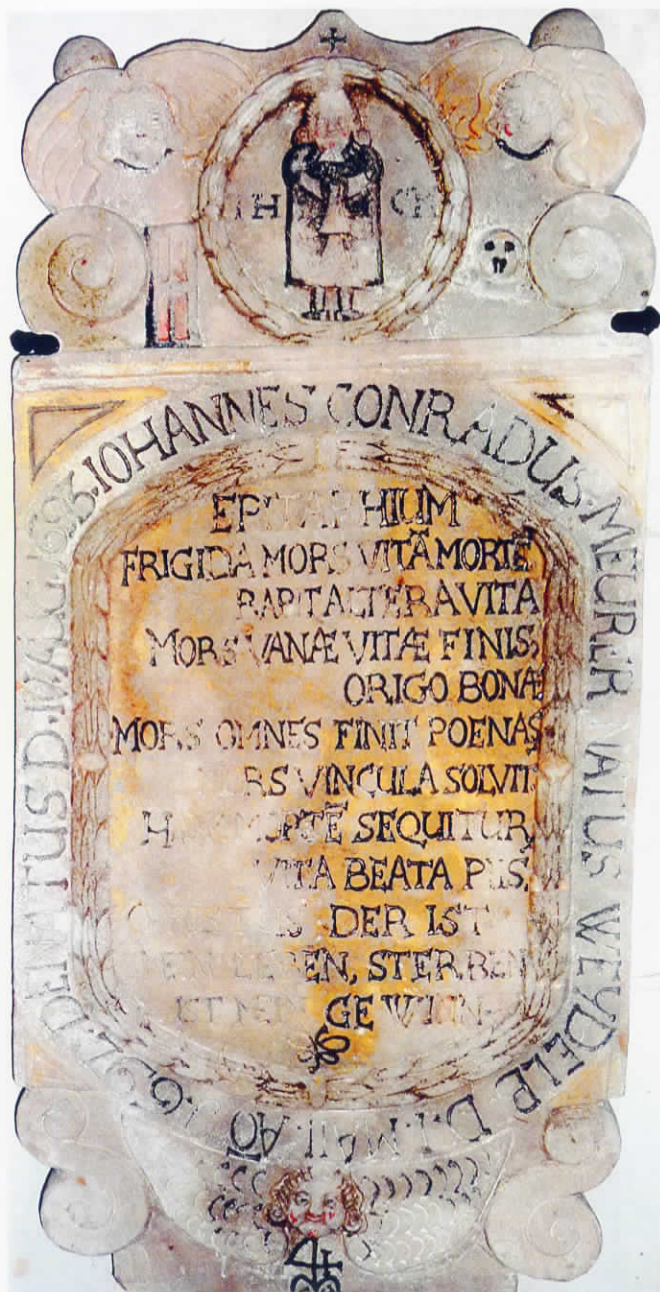 IH CH
IOHANNES CONRADUS MEURER NATUS WEYDELB D. I. MAII. AÕ 16
DENATUS D. 1695.
EPITAPHIUM
FRIGIDA MORS VITÃ MORTẼ
RAPIT ALTERA VITA
MORS VANÆ VITÆ FINIS,
ORIGO BONÆ
MORS OMNES FINIT POENAS
RS VINCULA SOLVIT
MORTẼ SEQUITUR
VITA BEATA PIIS,
DER IST
LEBEN, STERBEN
GEWINN